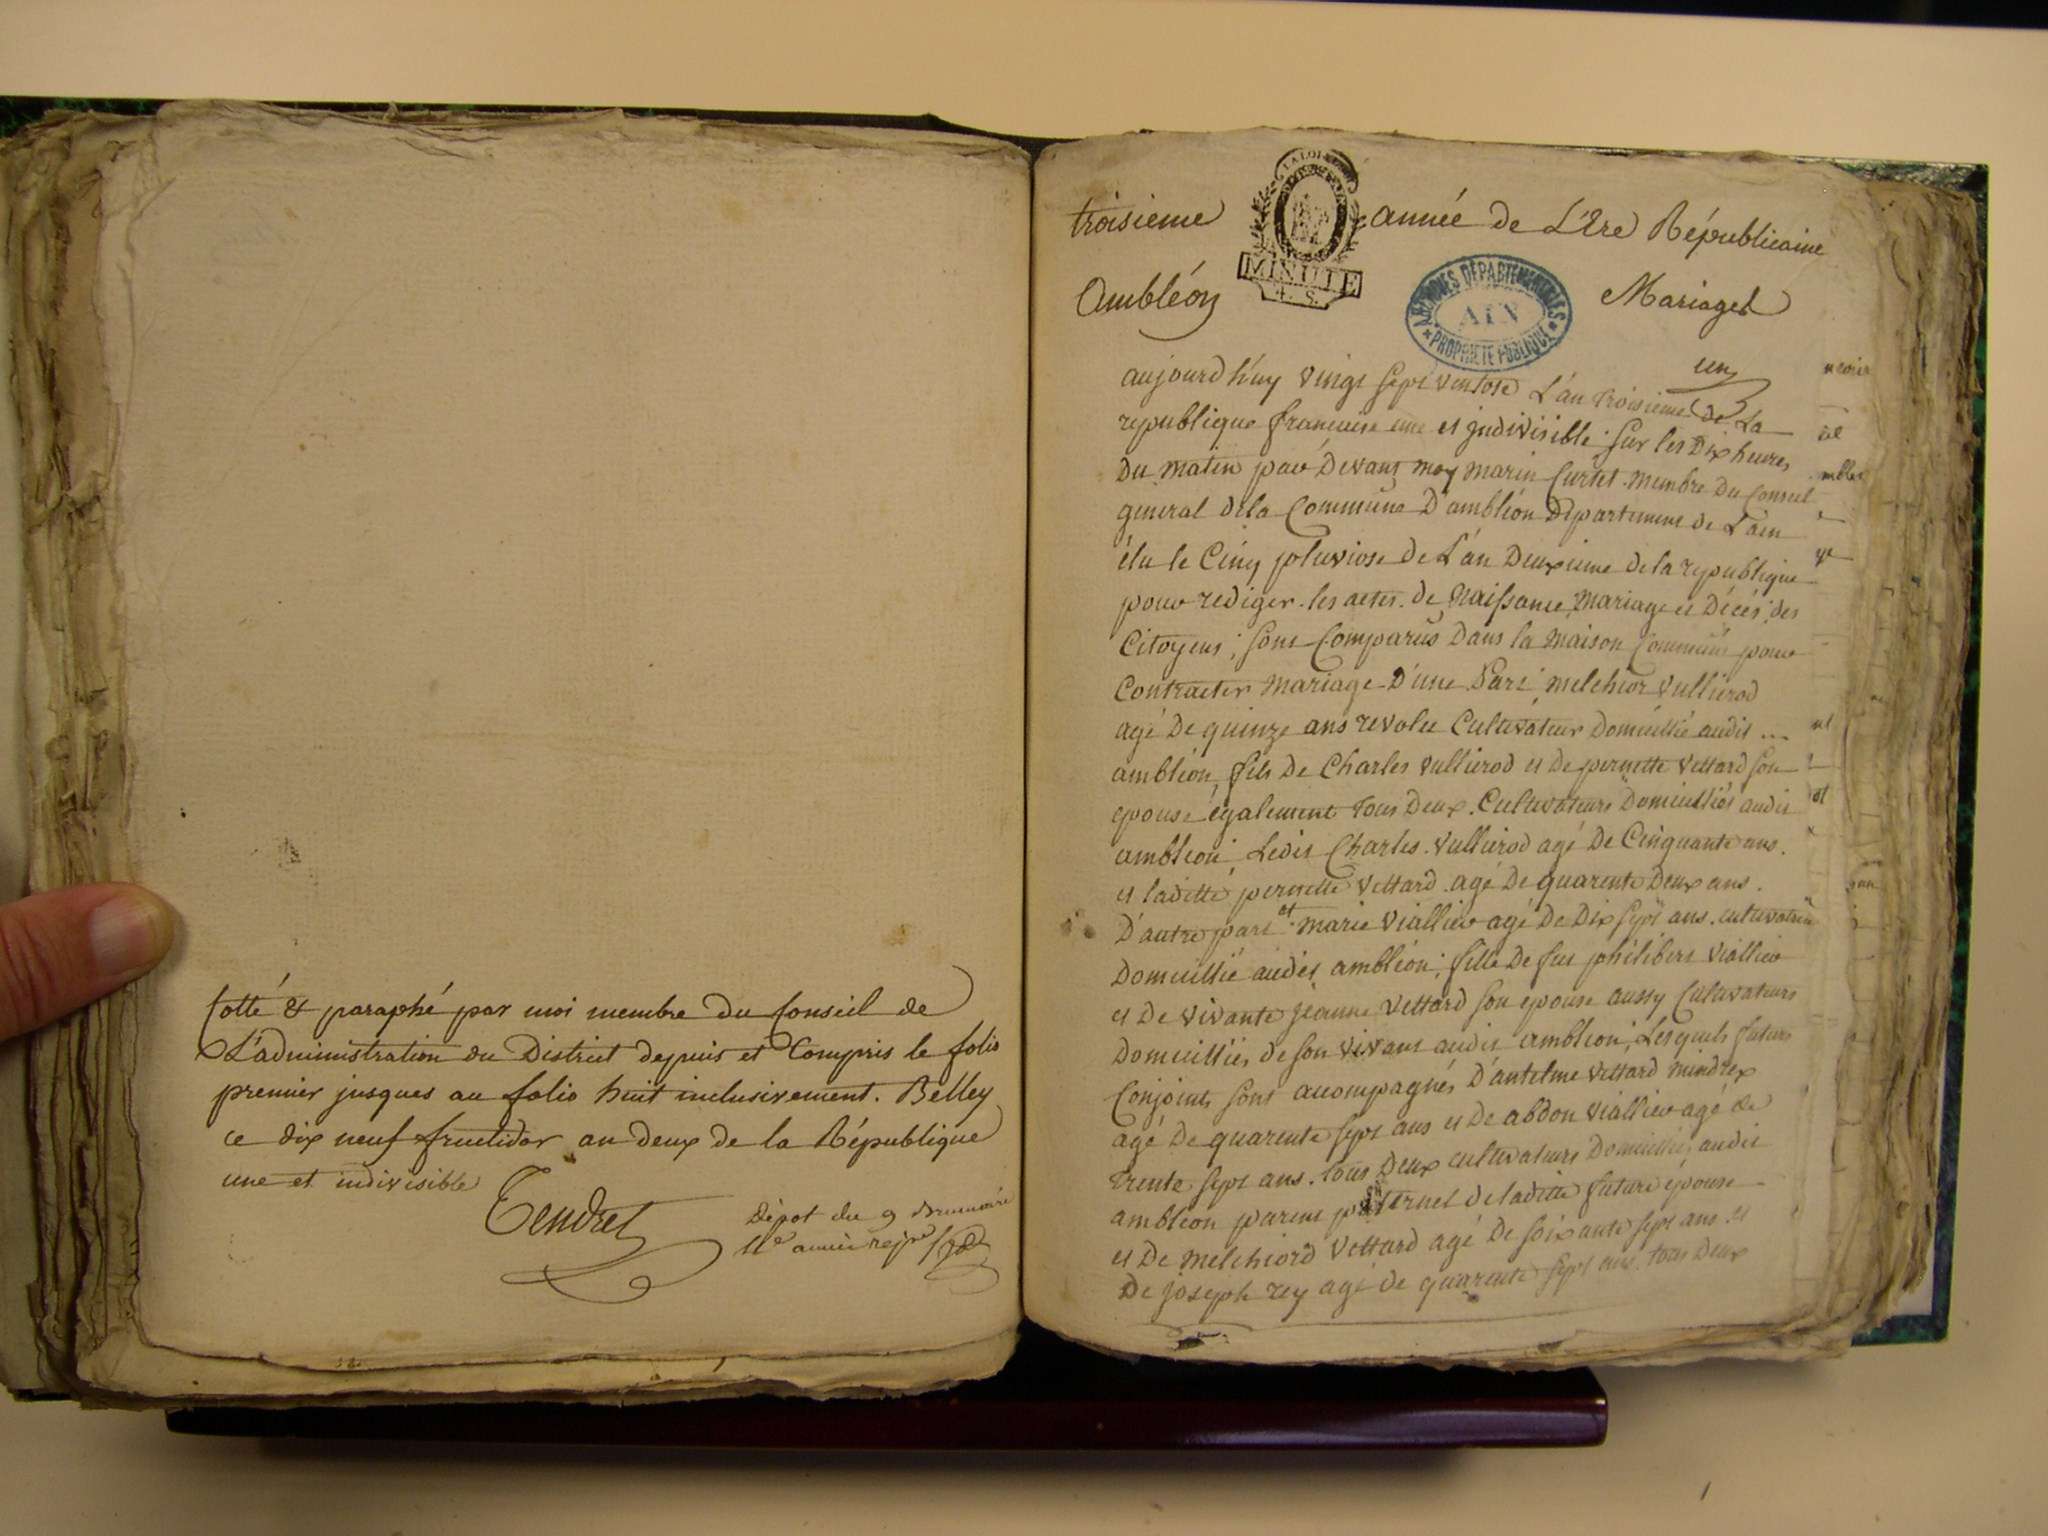 Cotté & paraphé par moi membre du Conseil de
L'administration du District depuis et Compris le folio
premier jusques au folio huit inclusivement. Belley
ce dix neuf fructidor an deux de la République
une et indivisible
Tendret
Dépot du 9 Brumaire
4e année rép
troisieme année de L'Ere Républicaine
LA LOI
MINUTE
4. S.
Ambléon Mariages
ARCHIVES DÉPARTEMENTALES
AIN
PROPRIÉTÉ PUBLIQUE
un
aujourd'huy vingt sept ventose L'an troisieme de La
republique francaise une et jndivisible; sur les Dix heures
Du matin par Devant moy marin Curtet membre Du Conseil
géneral dela Commune D'ambléon Département de L'ain
élu le Cinq pluviose de L'an Deuxieme de la republique
pour rediger les actes de Naissance, Mariage et Décés, des
Citoyens; sont Comparus Dans la Maison Commune pour
Contracter Mariage D'une Part melchior Vullierod
agé De quinze ans revolu Cultivateur Domicillié audit ...
ambléon, fils De Charles vullierod et De pernette Vettard son
epouse également tous Deux Cultivateurs Domicilliés audit
ambleon; Ledit Charles Vullierod agé De Cinquante ans.
et laditte pernette Vettard agé De quarente Deux ans.
D'autre part et marie Viallier agé De Dix sept ans. cultivatrice
Domicillié audit ambléon; fille De feu philibert Viallier
et De vivante jeanne Vettard son epouse aussy Cultivateurs
Domicilliés de son vivant audit ambleon; Lesquels futurs
Conjoints sont acompagnés D'antelme Vettard mindrex
agé De quarente sept ans et De abdon Viallier agé de
trente sept ans. tous Deux cultivateurs Domicilliés audit
ambleon parent paternel de laditte future épouse
et De Melchiord Vettard agé De soixante sept ans et
De joseph rey agé de quarente sept ans. tous Deux